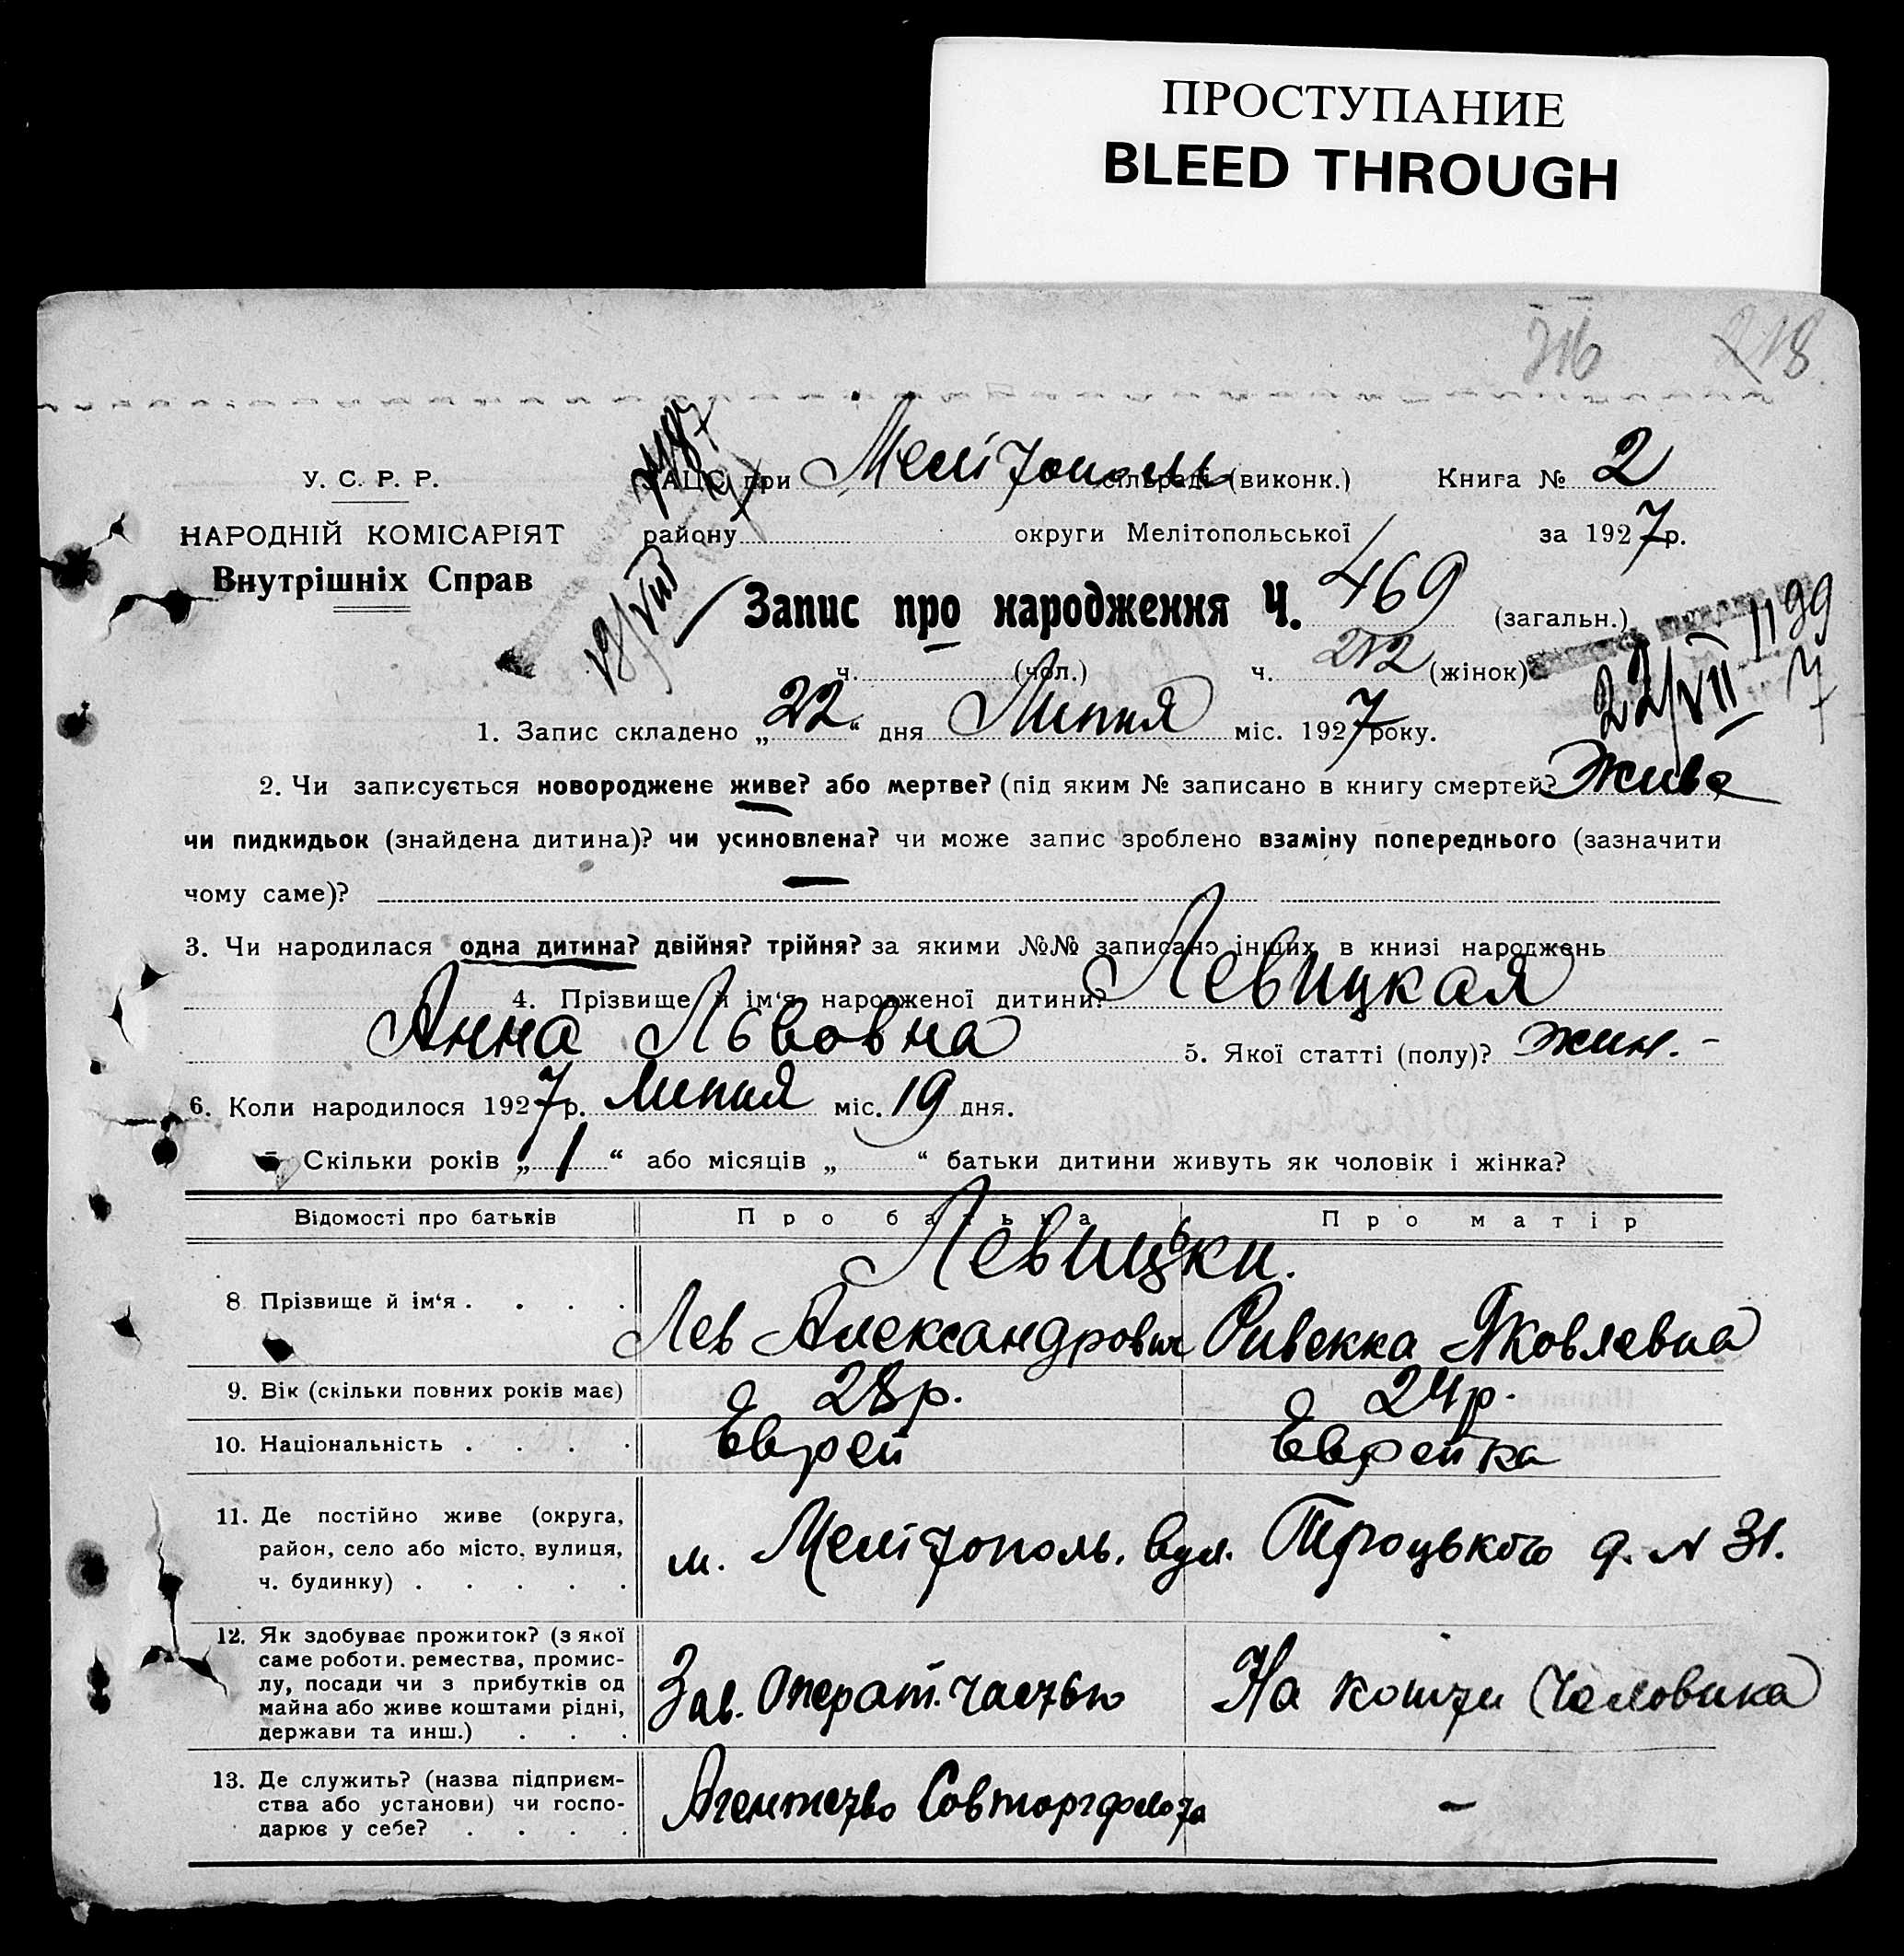 ПРОСТУПАНИЕ
BLEED THROUGH
716 218
У. С. Р. Р.
НАРОДНІЙ КОМІСАРІЯТ
Внутрішніх Справ
ЗАЦС при Мелітополь сільраді (виконк.) Книга № 2
району округи Мелітопольської за 1927р.
Запис про народження Ч. 469 (загальн.)
ч. (чол.) ч. 212 (жінок)
22/VII
1. Запис складено „22“ дня Липня міс. 1927 року.
2. Чи записується новороджене живе? або мертве? (під яким № записано в книгу смертей? Живе
чи пидкидьок (знайдена дитина)? чи усиновлена? чи може запис зроблено взаміну попереднього (зазначити
чому саме)? —
3. Чи народилася одна дитина? двійня? трійня? за якими №№ записано інших в книзі народжень
4. Прізвище й ім‘я народженої дитини? Левицкая
Анна Львовна 5. Якої статті (полу)? жин. -
6. Коли народилося 1927р. Липня міс. 19 дня.
Скільки років „1“ або місяців „ “ батьки дитини живуть як чоловік і жінка?
Відомості про батьків Про батька Про матір
Левицьки.
8 Прізвище й ім‘я . . . . Лев Александрович Ривекка Яковлевна
9. Вік (скільки повних років має) 28р. 24р.
10. Національність . . . . Еврей Еврейка
11. Де постійно живе (округа,
район, село або місто, вулиця,
ч. будинку) . . . . .
м. Мелітополь. вул. Троцького д. N 31.
12. Як здобуває прожиток? (з якої
саме роботи. ремества, промис-
лу, посади чи з прибутків од
майна або живе коштами рідні,
держави та инш.) . . .
Зав. Операт. частью На кошти Чоловика
13. Де служить? (назва підприєм-
ства або установи) чи госпо-
дарює у себе? . . . .
Агентство Совторгфлота —